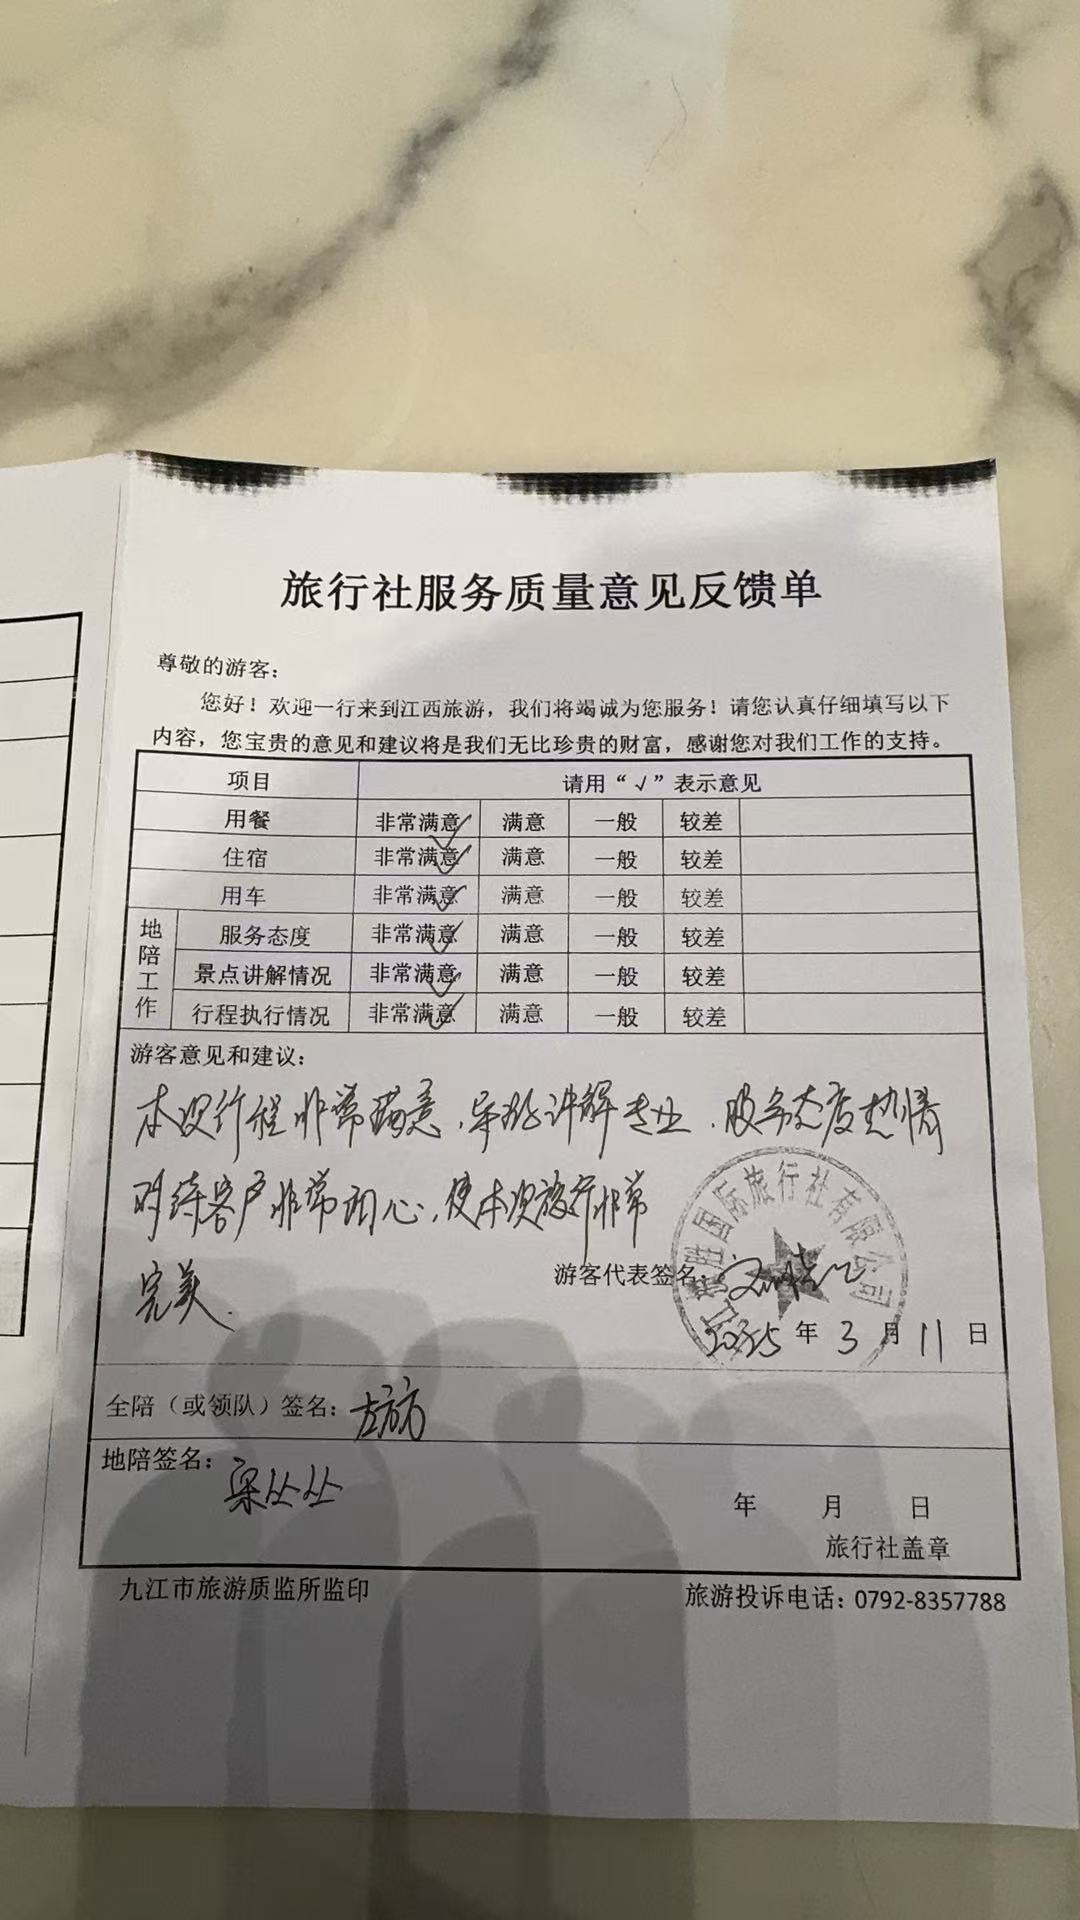 旅行社服务质量意见反馈单
尊敬的游客：
您好！欢迎一行来到江西旅游，我们将竭诚为您服务！请您认真仔细填写以下
内容，您宝贵的意见和建议将是我们无比珍贵的财富，感谢您对我们工作的支持。
项目 请用“√”表示意见
用餐 非常满意 满意 一般 较差
住宿 非常满意 满意 一般 较差
用车 非常满意 满意 一般 较差
地陪工作
服务态度 非常满意 满意 一般 较差
景点讲解情况 非常满意 满意 一般 较差
行程执行情况 非常满意 满意 一般 较差
游客意见和建议：
本次行程非常满意，导游讲解专业，服务态度热情
对待客户非常用心，使本次旅行非常
完美.
国际旅行社有限公司
游客代表签名：
2025年3月11日
全陪（或领队）签名：左方方
地陪签名：梁丛丛
年 月 日
旅行社盖章
九江市旅游质监所监印 旅游投诉电话：0792-8357788